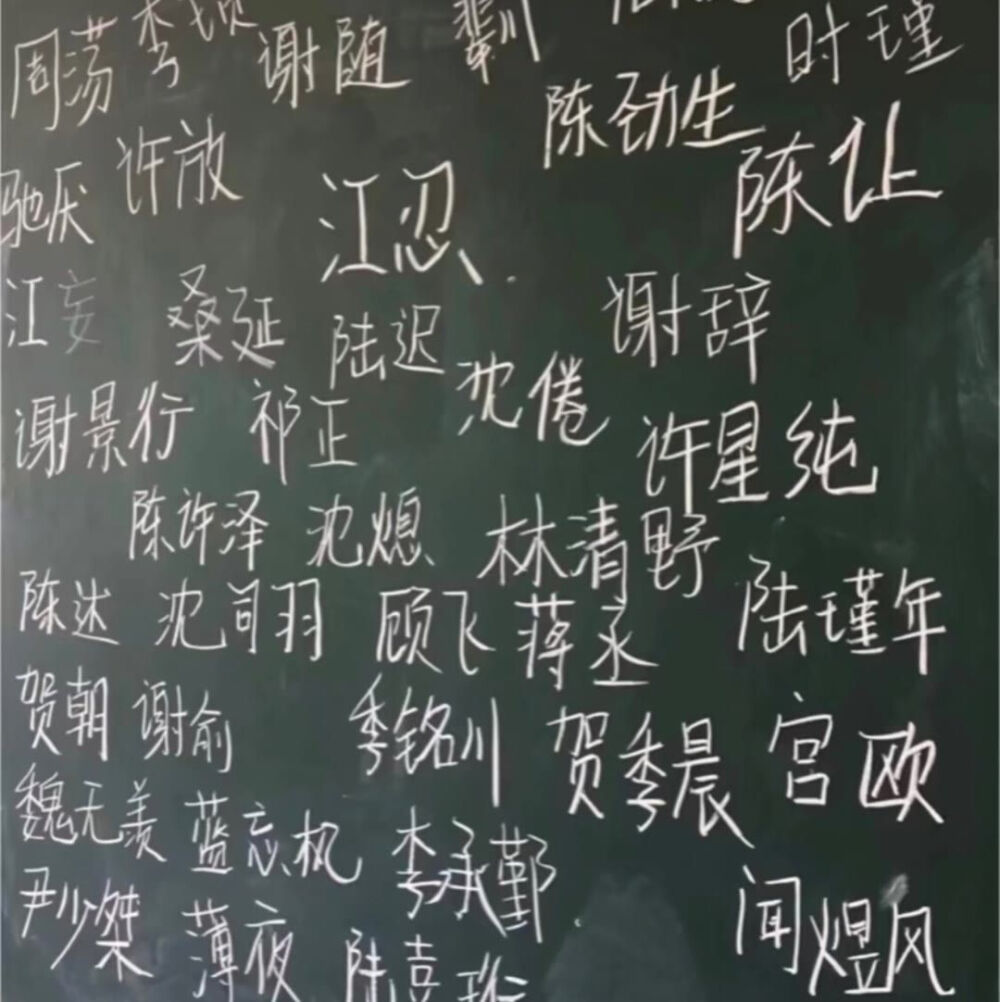 周荡 李 谢随 川 时瑾
陈劲生
驰厌 许放 江忍 陈让
江妄 桑延 陆迟 谢辞
谢景行 祁正 沈倦 许星纯
陈许泽 沈熄 林清野
陈达 沈司羽 顾飞 蒋丞 陆瑾年
贺朝 谢俞 季铭川 贺季晨 宫欧
魏无羡 蓝忘机 李承鄞
尹少桀 薄夜 陆 闻煜风